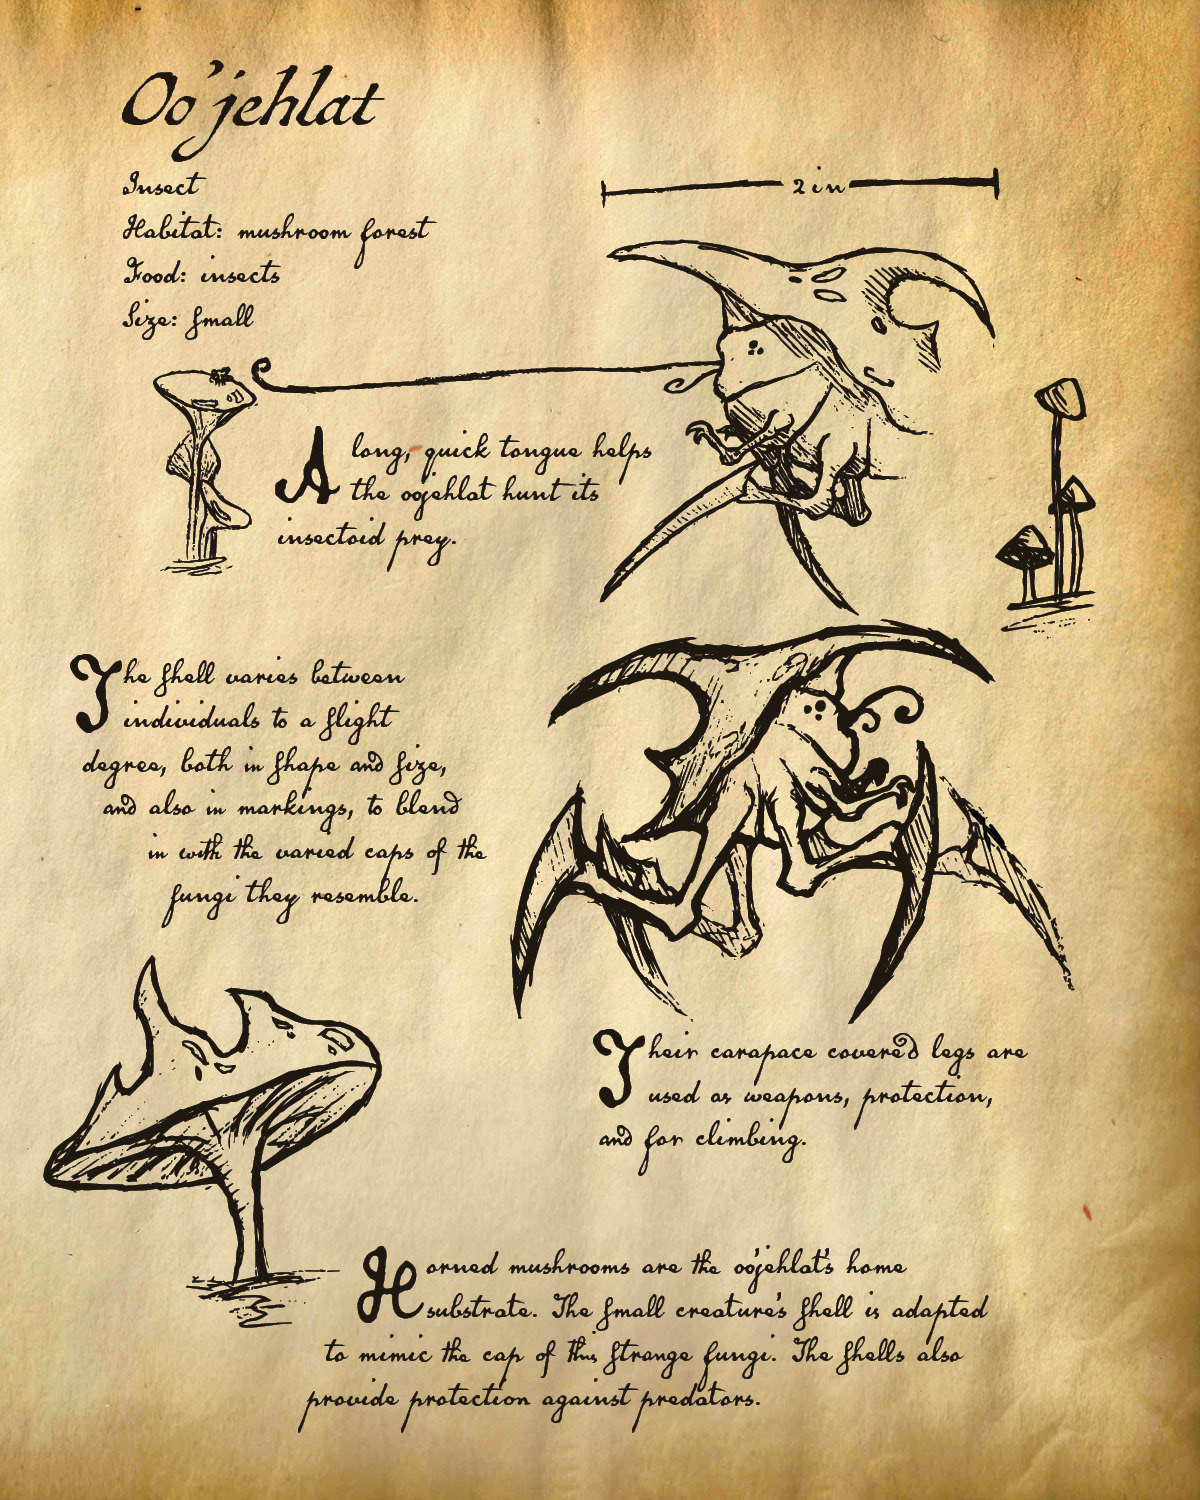 Oo'jehlat
Insect
Habitat: mushroom forest
Food: insects
Size: Small
2in
A long, quick tongue helps
the oojehlat hunt its
insectoid prey.
The shell varies between
individuals to a slight
degree, both in shape and size,
and also in markings, to blend
in with the varied caps of the
fungi they resemble.
Their carapace covered legs are
used as weapons, protection,
and for climbing.
Horned mushrooms are the oo'jehlat's home
substrate. The small creature's shell is adapted
to mimic the cap of this strange fungi. The shells also
provide protection against predators.